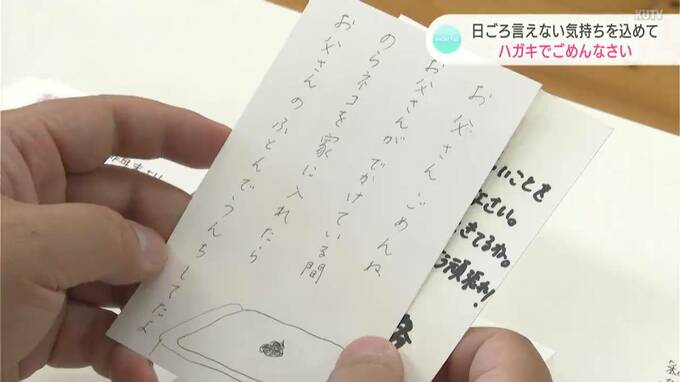 KUTV
日ごろ言えない気持ちを込めて
ハガキでごめんなさい
お父さんごめんね
お父さんがでかけている間
のらネコを家に入れたら
お父さんのふとんでうんちしてたよ
いことを
さい。
きてるか。
頑張れ!